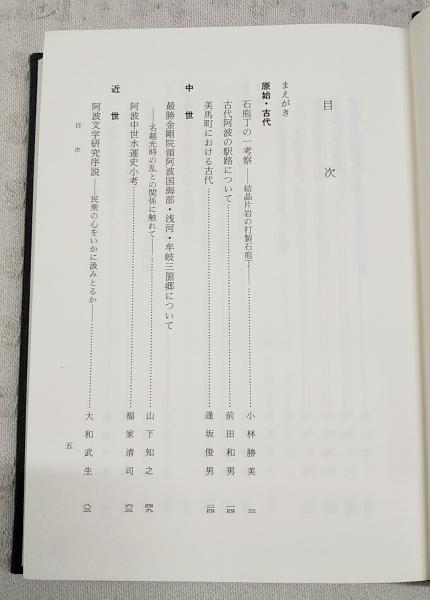 目次
まえがき
原始・古代
石庖丁の一考察――結晶片岩の打製石庖丁――……小林勝美 三
古代阿波の駅路について……前田和男 一四
美馬町における古代……逢坂俊男 二四
中世
最勝金剛院領阿波国海部・浅河・牟岐三箇郷について
――名越光時の乱との関係に触れて――……山下知之
阿波中世水運史小考……福家清司
近世
阿波文学研究序説――民衆の心をいかに汲みとるか――……大和武生
目次
五